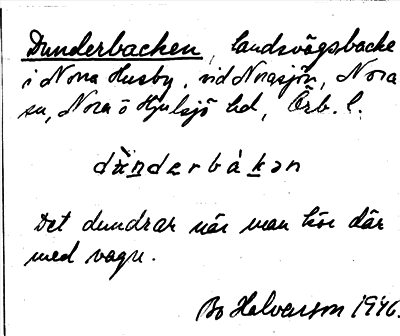 Dunderbacken, landsvägsbacke
i Norra Husby, vid Norasjön, Nora
sn, Nora o Hjulsjö hd, Örb. l.
dùnderbákən
Det dundrar när man kör där
med vagn.
Bo Halvarson 1946.